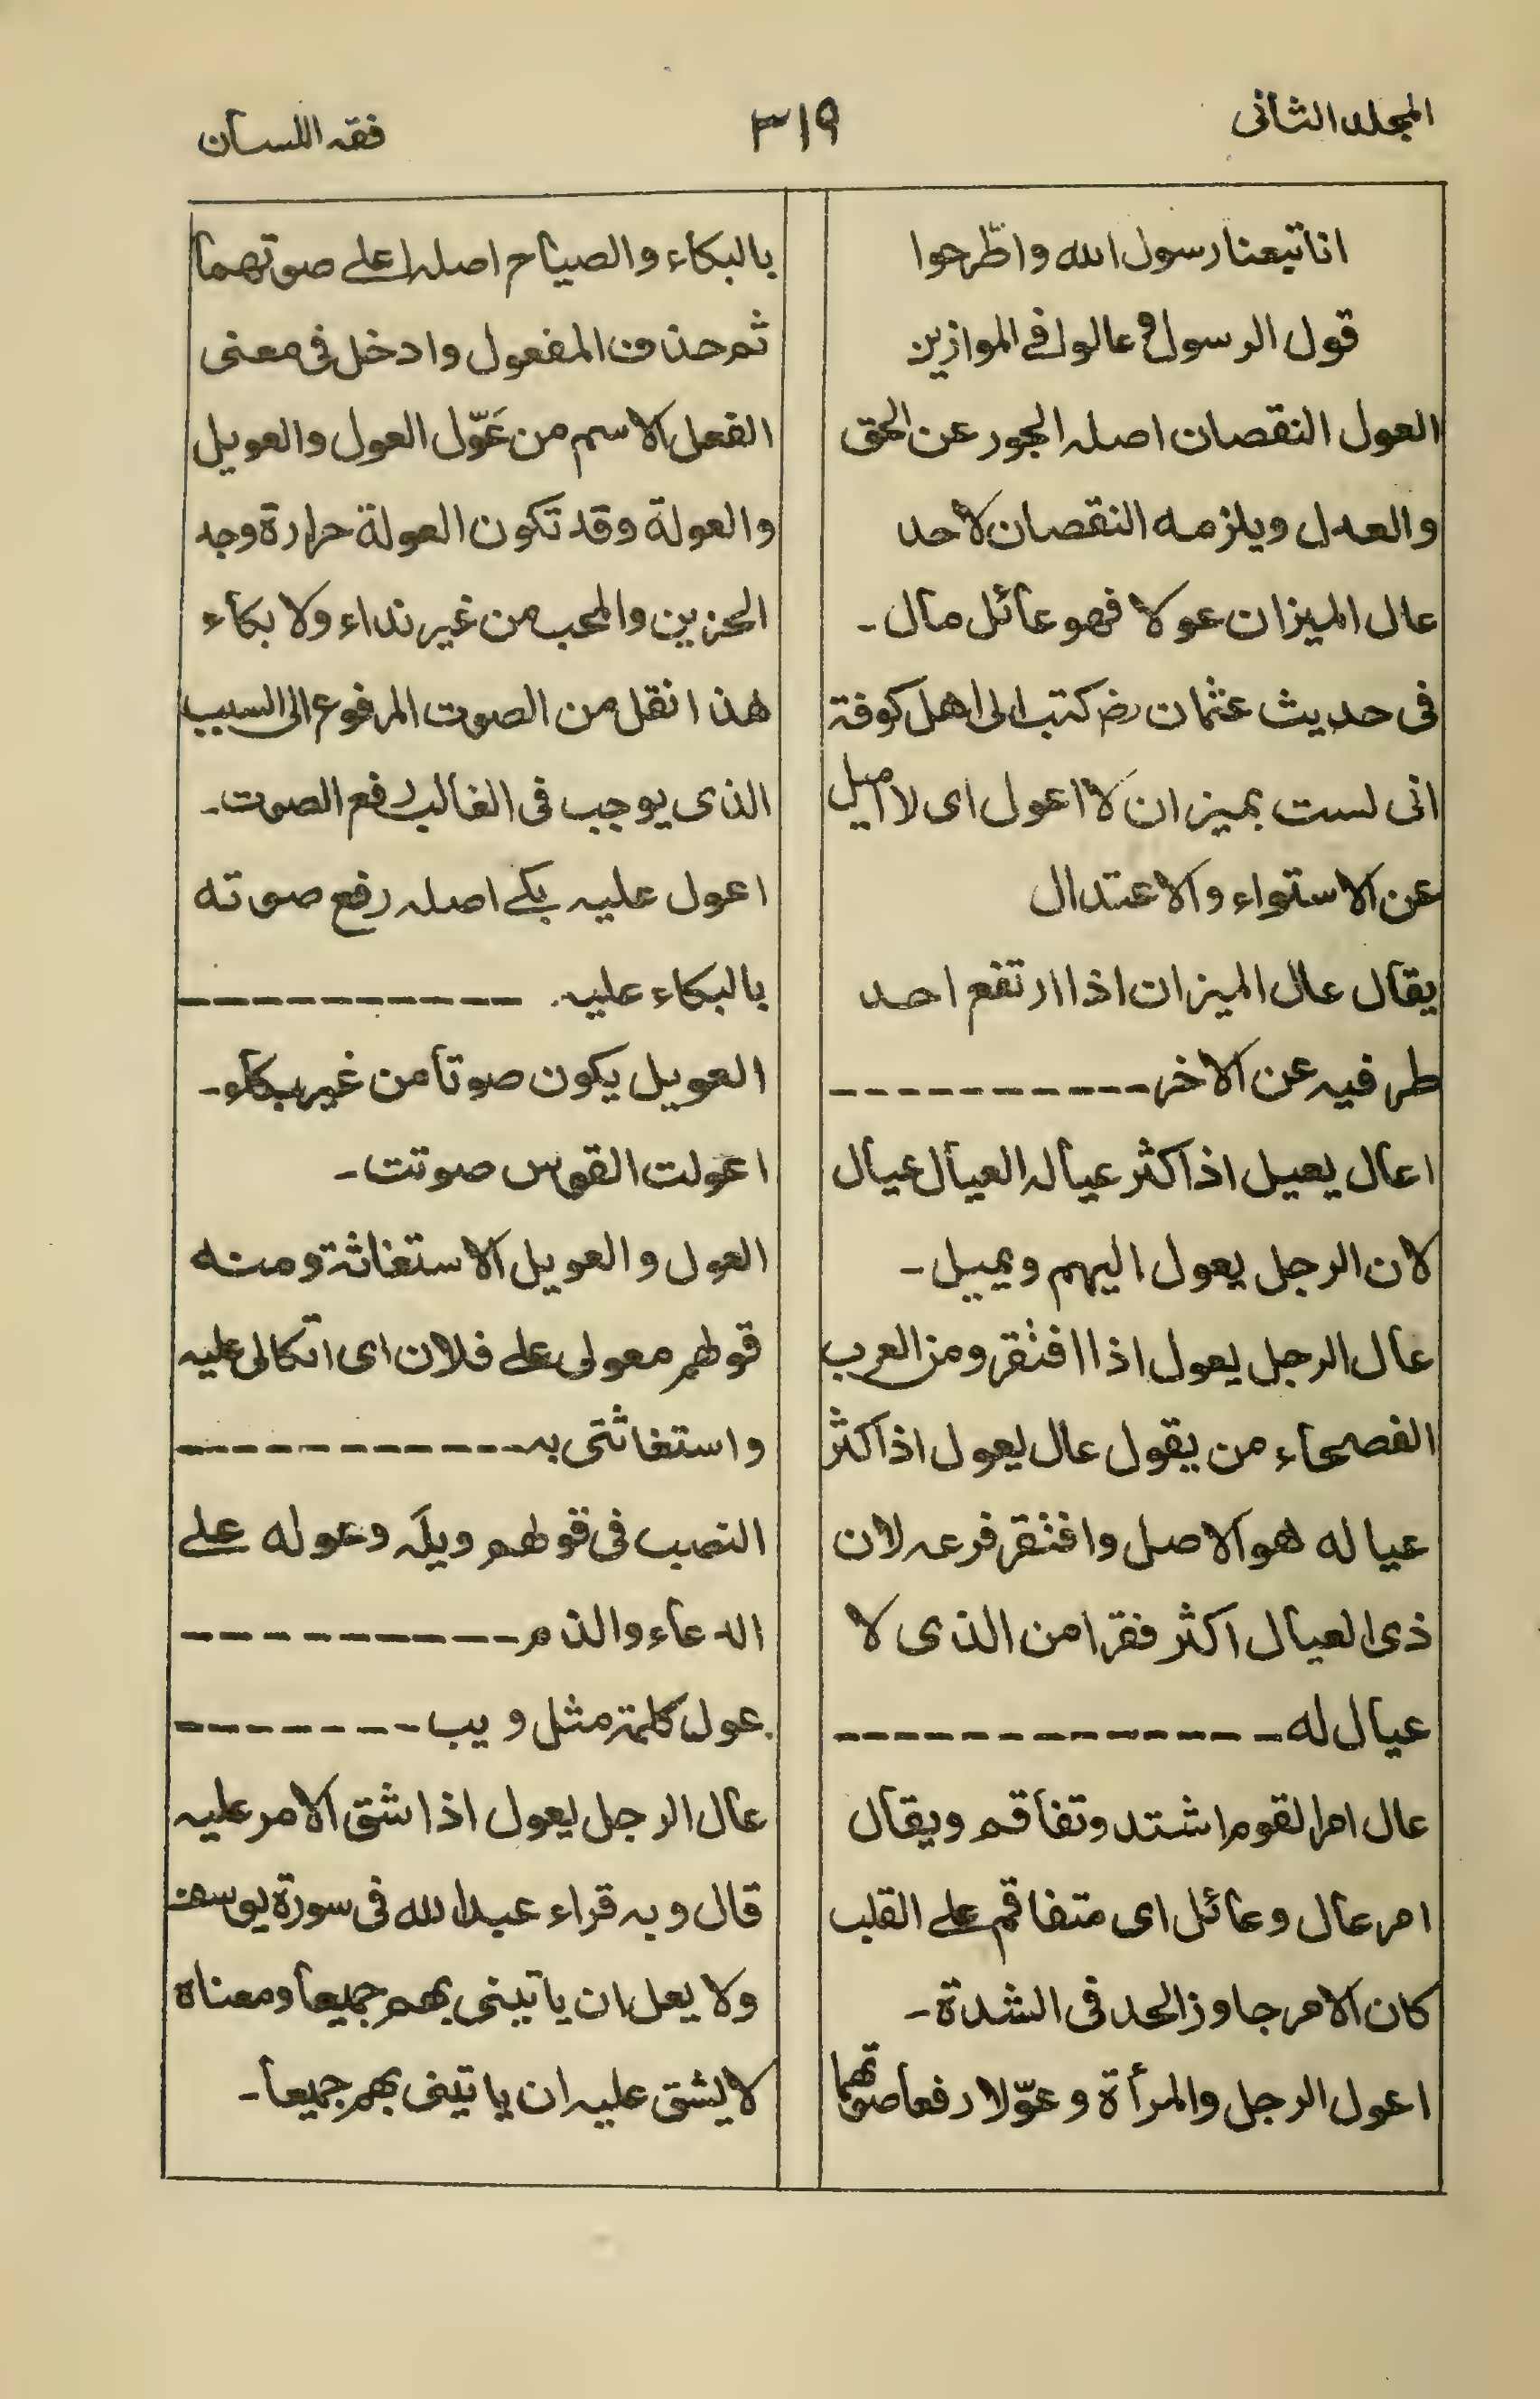 المجلد الثانى
٣١٩
فقه اللسان
انا تبعنا رسول الله واطّرحوا
قول الرسول و عالوا فى الموازين
العول النقصان اصله الجور عن الحق
والعدل ويلزمه النقصان لاحد
عال الميزان عولا فهو عائل مال ـ
فى حديث عثمان رض كتب الى اهل كوفة
انى لست بميزان لا اعول اى لا اميل
عن الاستواء والاعتدال
يقال عال الميزان اذا ارتفع احد
طرفيه عن الاخر ـ
اعال يعيل اذا كثر عياله العيال عيال
لان الرجل يعول اليهم ويميل ـ
عال الرجل يعول اذا افتقر ومن العرب
الفصحاء من يقول عال يعول اذا كثر
عياله هو الاصل وافتقر فرعه لان
ذى العيال اكثر فقرا من الذى لا
عيال له ـ
عال امر القوم اشتد وتفاقم ويقال
امر عال وعائل اى متفاقم على القلب
كان الامر جاوز الحد فى الشدة ـ
اعول الرجل والمرأة وعوّلا رفعا صوتهما
بالبكاء والصياح اصله اعلى صوتهما
ثم حذف المفعول وادخل فى معنى
الفعل الاسم من عَوّل العول والعويل
والعولة وقد تكون العولة حرارة وجد
الحزين والمحب من غير نداء ولا بكاء
هذا نقل من الصوت المرفوع الى السبب
الذى يوجب فى الغالب رفع الصوت ـ
اعول عليه بكى اصله رفع صوته
بالبكاء عليه ـ
العويل يكون صوتا من غير بكاء ـ
اعولت القوس صوتت ـ
العول والعويل الاستغاثة ومنه
قولهم معولى على فلان اى اتكالى عليه
واستغاثتى به ـ
النصب فى قولهم ويلَه وعوله على
الدعاء والذم ـ
عول كلمة مثل ويب ـ
عال الرجل يعول اذا شق الامر عليه
قال وبه قراء عبد الله فى سورة يوسف
ولا يعل ان ياتينى بهم جميعا ومعناه
لا يشق عليه ان ياتينى بهم جميعا ـ